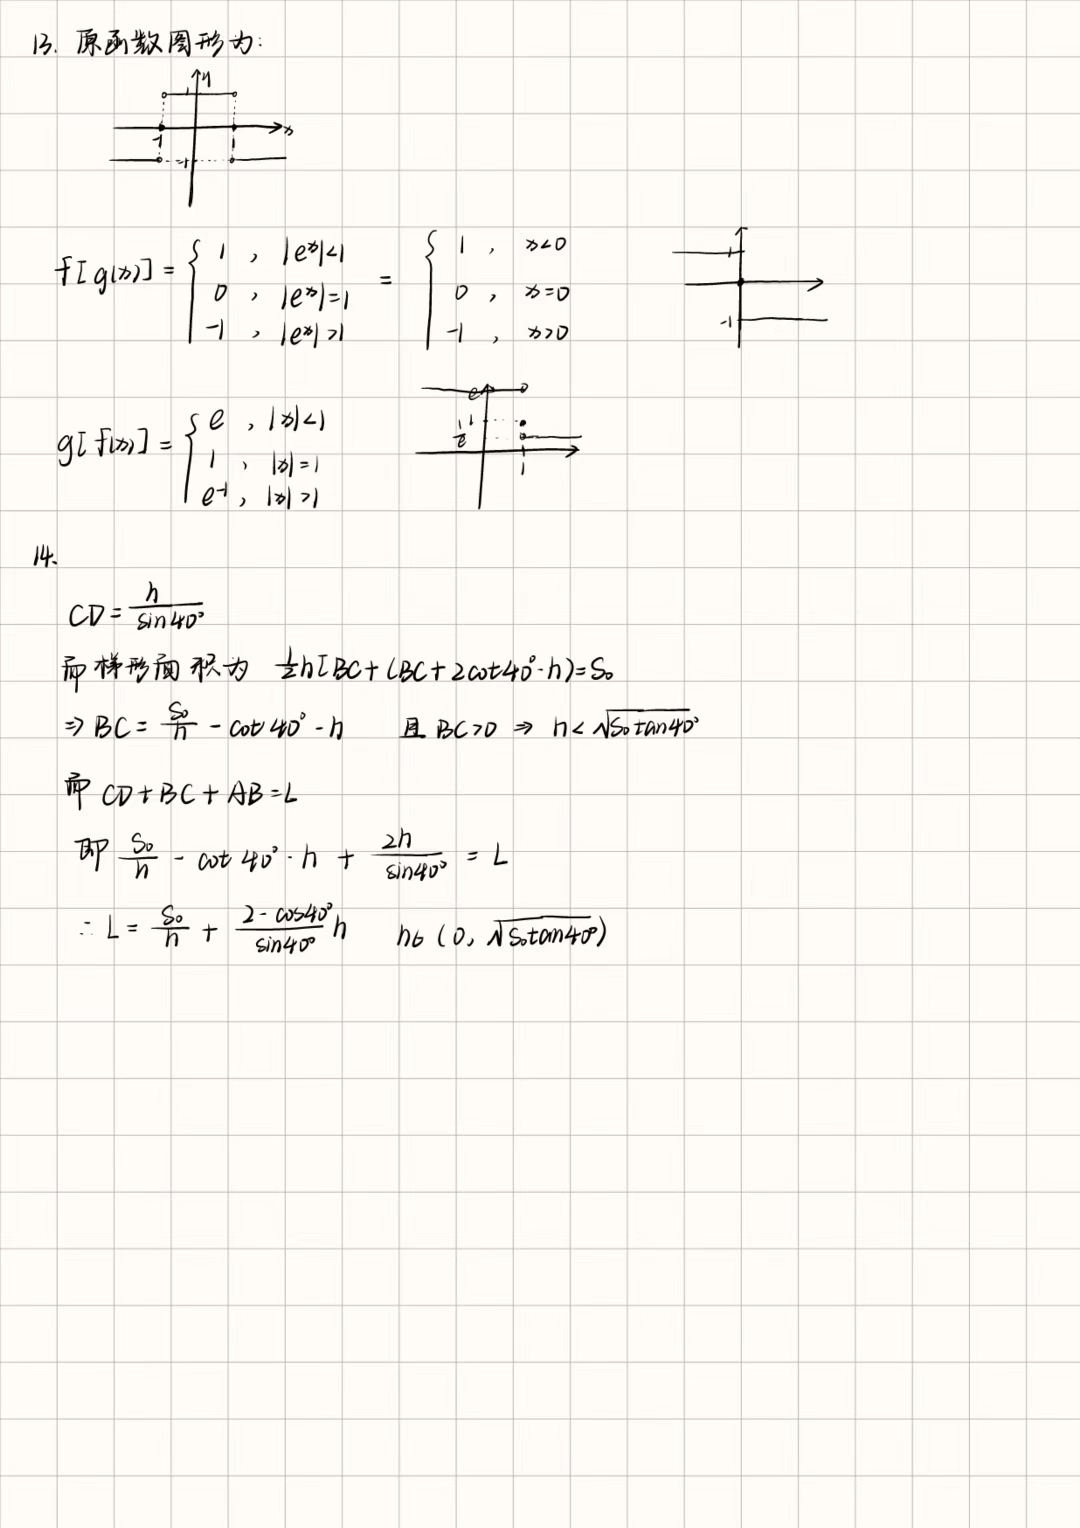 13. 原函数图形为:
y
1
x
-1 1
-1
f[g(x)] = { 1 , |eˣ|<1 = { 1 , x<0
0 , |eˣ|=1 0 , x=0
-1 , |eˣ|>1 -1 , x>0
1
-1
g[f(x)] = { e , |x|<1
1 , |x|=1
e⁻¹ , |x|>1
e
1
1/e
1
14.
CD = h/sin40°
而梯形面积为 ½h[BC+(BC+2cot40°·h)=S₀
⇒ BC = S₀/h - cot40°·h 且 BC>0 ⇒ h<√(S₀tan40°)
而 CD+BC+AB=L
即 S₀/h - cot40°·h + 2h/sin40° = L
∴ L = S₀/h + (2-cos40°)/sin40° h h∈(0, √(S₀tan40°))